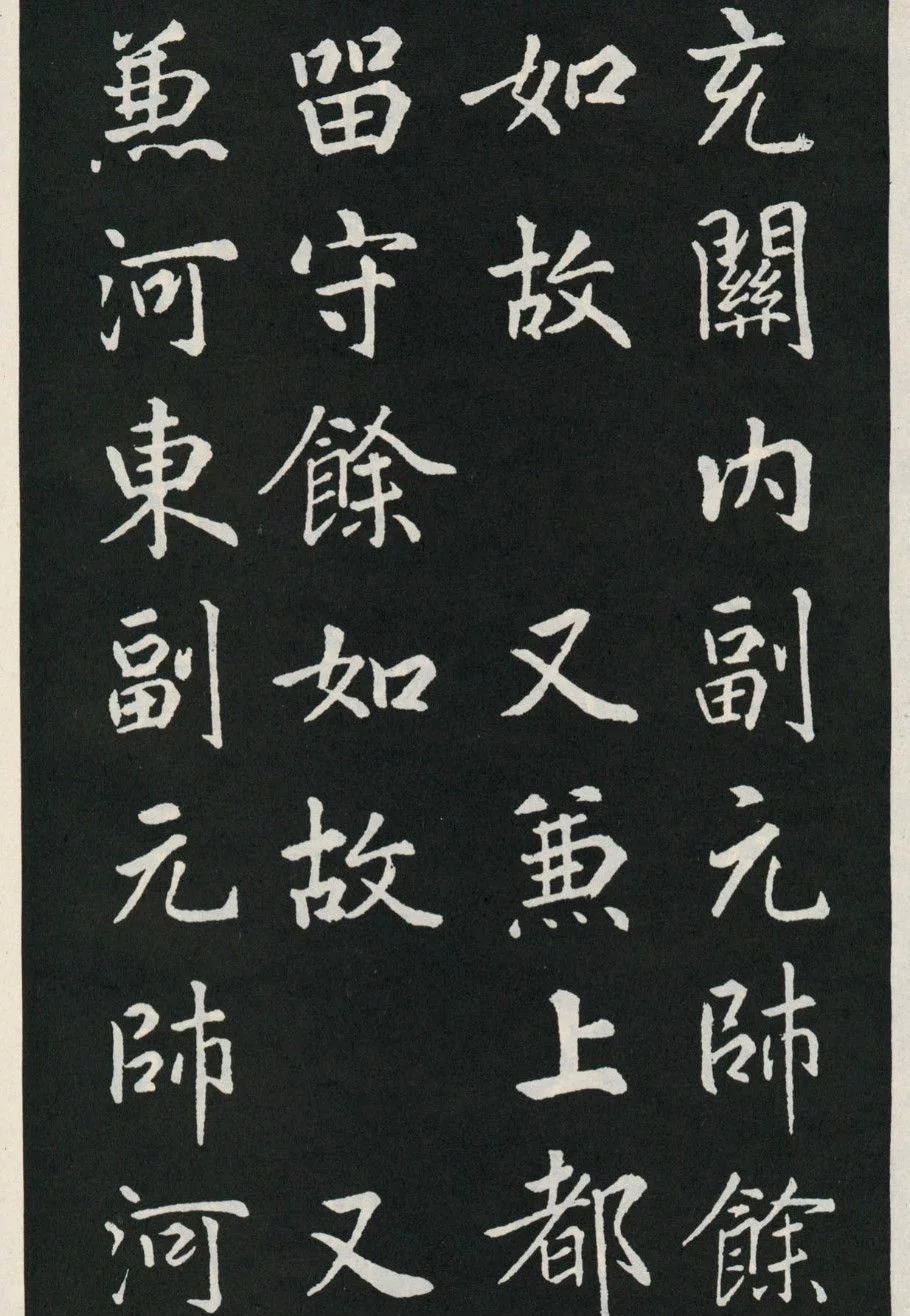 充關內副元帥餘
如故 又兼上都
留守餘如故 又
兼河東副元帥河